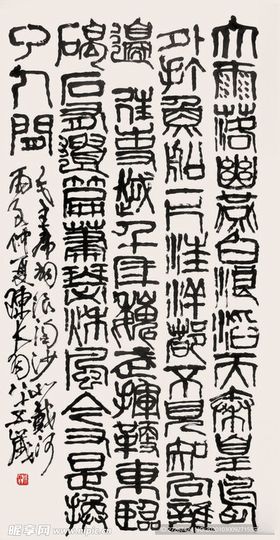 大雨落幽燕白浪滔天秦皇島
外打魚船一片汪洋都不見知向誰
邊往事越千年魏武揮鞭東臨
碣石有遺篇蕭瑟秋風今又是換
了人間
毛主席詞浪淘沙北戴河
丙子仲夏陳大羽八十五歲